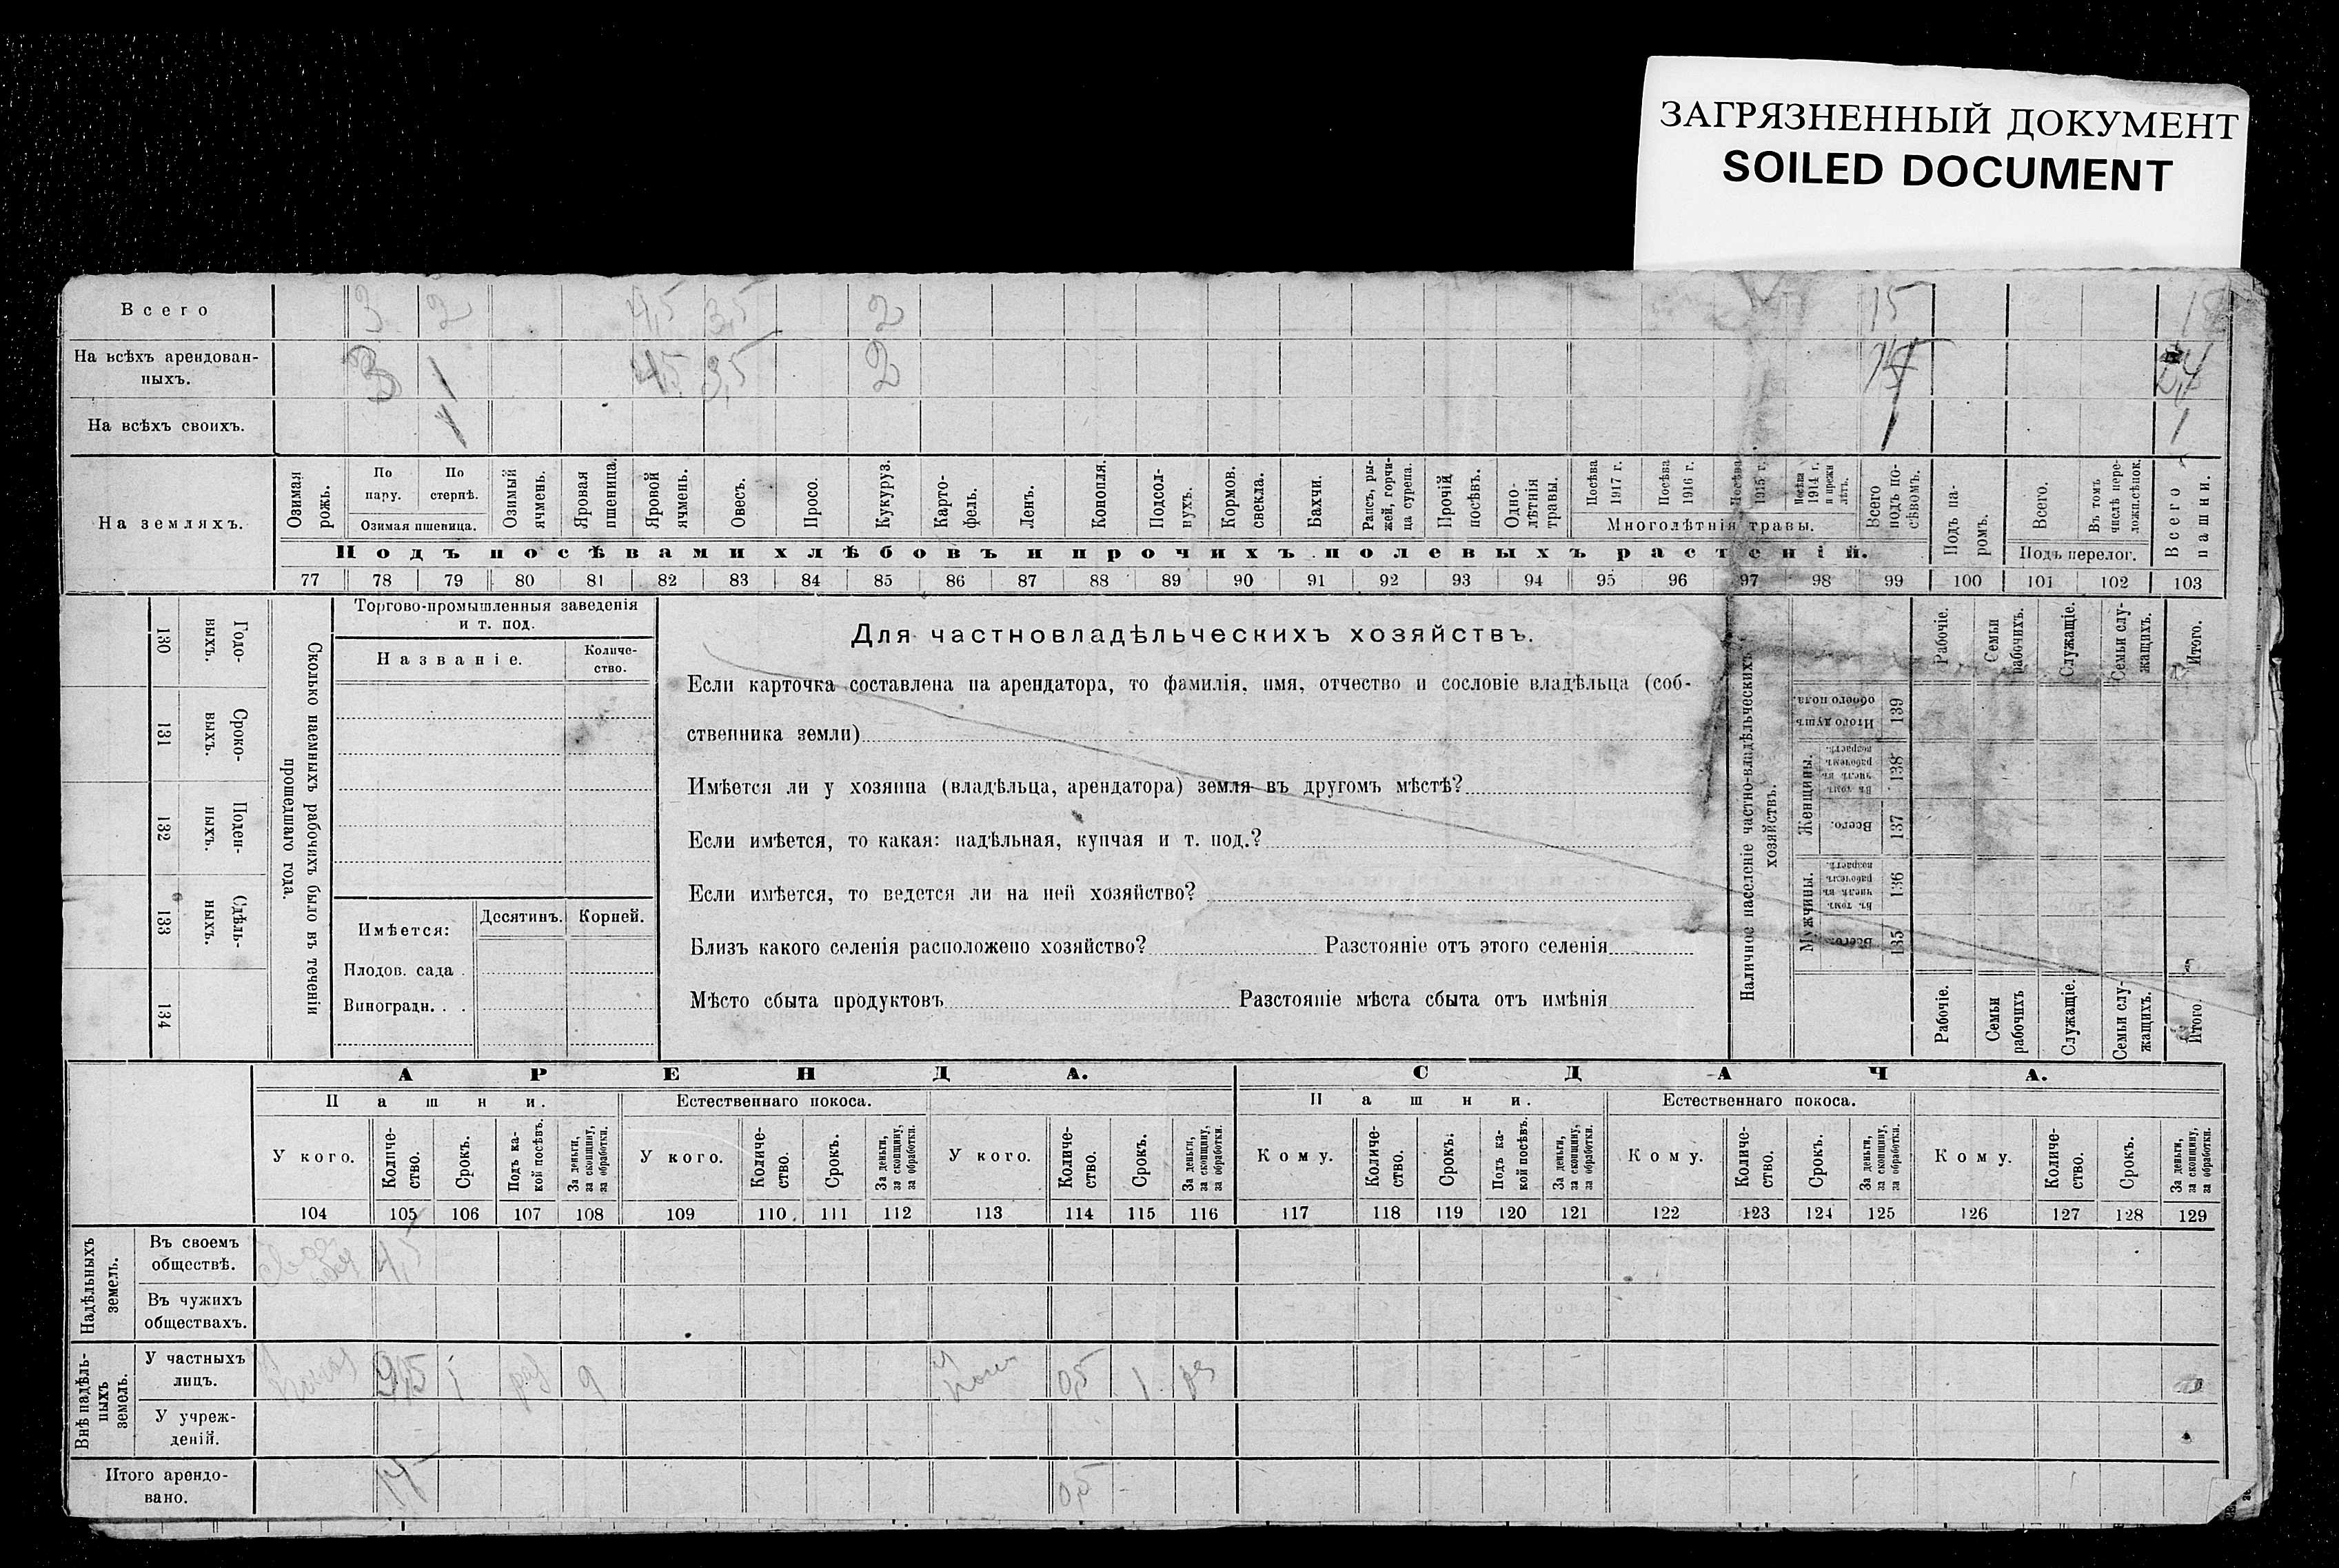 ЗАГРЯЗНЕННЫЙ ДОКУМЕНТ
SOILED DOCUMENT
Всего 3 2 4,5 3,5 2 15
На всѣхъ арендован-
ныхъ. 3 1 4,5 3,5 2 14
На всѣхъ своихъ. 1 1 1
На земляхъ.
Озимая рожь.
По пару.
По стернѣ.
Озимая пшеница.
Озимый ячмень.
Яровая пшеница.
Яровой ячмень.
Овесъ.
Просо.
Кукуруз.
Карто-
фель.
Ленъ.
Конопля.
Подсол-
нухъ.
Кормов. свекла.
Бахчи.
Рапсъ, ры-
жей, горчи-
ца сурепа.
Прочій посѣвъ.
Одно-
лѣтнія травы.
Посѣва 1917 г.
Посѣва 1916 г.
Посѣва 1915 г.
Посѣва 1914 г. и прежн лѣтъ.
Многолѣтнія травы.
Всего подъ по-
сѣвомъ.
Подъ па-
ромъ.
Всего.
Въ томъ числѣ пере-
ложн.сѣнок.
Подъ перелог.
Всего пашни.
Подъ посѣвами хлѣбовъ и прочихъ полевыхъ растеній.
77 78 79 80 81 82 83 84 85 86 87 88 89 90 91 92 93 94 95 96 97 98 99 100 101 102 103
Сколько наемныхъ рабочихъ было въ теченіи
прошедшаго года.
Годо-
выхъ.
130
Сроко-
выхъ.
131
Поден-
ныхъ.
132
Сдѣль-
ныхъ.
133
134
Торгово-промышленныя заведенія
и т. под.
Названіе.
Количе-
ство.
Имѣется:
Десятинъ.
Корней.
Плодов. сада .
Виноградн. . .
Для частновладѣльческихъ хозяйствъ.
Если карточка составлена на арендатора, то фамилія, имя, отчество и сословіе владѣльца (соб-
ственника земли)
Имѣется ли у хозяина (владѣльца, арендатора) земля въ другомъ мѣстѣ?
Если имѣется, то какая: надѣльная, купчая и т. под.?
Если имѣется, то ведется ли на ней хозяйство?
Близъ какого селенія расположено хозяйство? Разстояніе отъ этого селенія
Мѣсто сбыта продуктовъ Разстояніе мѣста сбыта отъ имѣнія
Наличное населеніе частно-владѣльческихъ
хозяйствъ.
Итого душъ обоего пола.
139
Женщины.
Въ томъ числѣ въ рабочемъ возрастѣ.
138
Всего.
137
Мужчины.
Въ томъ числѣ въ рабочемъ возрастѣ.
136
Всего.
135
Рабочіе.
Семьи рабочихъ.
Служащіе.
Семьи слу-
жащихъ.
Итого.
Рабочіе.
Семьи рабочихъ
Служащіе.
Семьи слу-
жащихъ.
Итого.
АРЕНДА. СДАЧА.
Пашни. Естественнаго покоса. Пашни. Естественнаго покоса.
У кого.
Количе-
ство.
Срокъ.
Подъ ка-
кой посѣвъ.
За деньги,
за скопщину,
за обработки.
У кого.
Количе-
ство.
Срокъ.
За деньги,
за скопщину,
за обработки.
У кого.
Количе-
ство.
Срокъ.
За деньги,
за скопщину,
за обработки.
Кому.
Количе-
ство.
Срокъ.
Подъ ка-
кой посѣвъ.
За деньги,
за скопщину,
за обработки.
Кому.
Количе-
ство.
Срокъ.
За деньги,
за скопщину,
за обработки.
Кому.
Количе-
ство.
Срокъ.
За деньги,
за скопщину,
за обработки.
104 105 106 107 108 109 110 111 112 113 114 115 116 117 118 119 120 121 122 123 124 125 126 127 128 129
Надѣльныхъ
земель.
Въ своемъ
обществѣ. 4,5
Въ чужихъ
обществахъ.
Внѣ надѣль-
ныхъ
земель.
У частныхъ
лицъ. 9,5 1 0,5 1
У учреж-
деній.
Итого арендо-
вано. 14 0,5